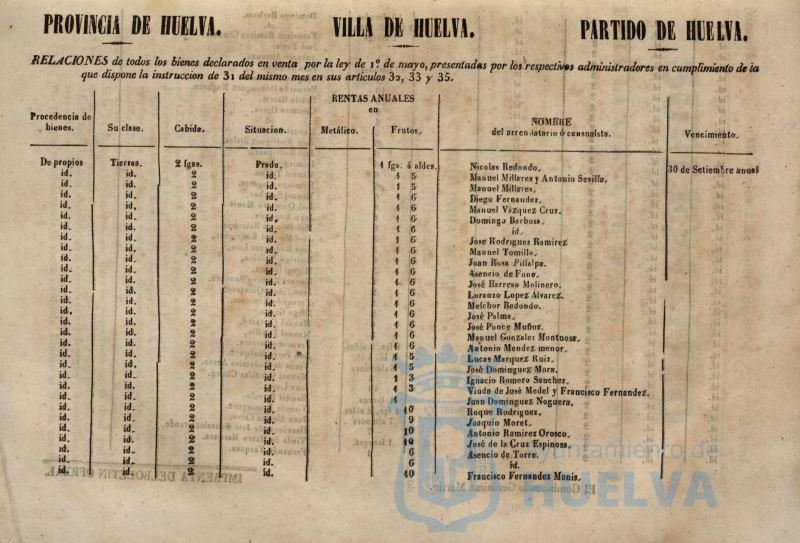 PROVINCIA DE HUELVA. VILLA DE HUELVA. PARTIDO DE HUELVA.
RELACIONES de todos los bienes declarados en venta por la ley de 1º de mayo, presentadas por los respectivos administradores en cumplimiento de la
que dispone la instruccion de 31 del mismo mes en sus articulos 32, 33 y 35.
RENTAS ANUALES
en
Procedencia de bienes. Su clase. Cabida. Situacion. Metálico. Frutos. NOMBRE del arrendatario ó censualista. Vencimiento.
De propios Tierras. 2 fgas. Prado. 1 fga. 6 aldes. Nicolas Redondo. 30 de Setiembre anual
id. id. 2 id. 1 5 Manuel Millares y Antonio Sevilla.
id. id. 2 id. 1 5 Manuel Millares.
id. id. 2 id. 1 6 Diego Fernandez.
id. id. 2 id. 1 6 Manuel Vazquez Cruz.
id. id. 2 id. 1 6 Domingo Barbosa.
id. id. 2 id. 1 6 id.
id. id. 2 id. 1 6 José Rodriguez Ramirez
id. id. 2 id. 1 6 Manuel Tomillo.
id. id. 2 id. 1 6 Juan Rosa Pillalpa.
id. id. 2 id. 1 6 Asencio de Fons.
id. id. 2 id. 1 6 José Barreso Molinero.
id. id. 2 id. 1 6 Loranzo Lopez Alvarez.
id. id. 2 id. 1 6 Melchor Redondo.
id. id. 2 id. 1 6 José Palma.
id. id. 2 id. 1 6 José Ponce Muñoz.
id. id. 2 id. 1 6 Manuel Gonzales Montuosa.
id. id. 2 id. 1 6 Antonio Mendez menor.
id. id. 2 id. 1 5 Lucas Marquez Ruiz.
id. id. 2 id. 1 5 José Dominguez Mora.
id. id. 2 id. 1 3 Ignacio Romero Sanchez.
id. id. 2 id. 1 3 Viuda de José Medel y Francisco Fernandez.
id. id. 2 id. 1 Juan Dominguez Noguera.
id. id. 2 id. 10 Roque Rodriguez.
id. id. 2 id. 9 Joaquin Moret.
id. id. 2 id. 10 Antonio Ramirez Orosco.
id. id. 2 id. 10 José de la Cruz Espinosa.
id. id. 2 id. 6 Asencio de Torre.
id. id. 2 id. 6 id.
id. id. 2 id. 10 Francisco Fernandez Monis.
Ayuntamiento de
HUELVA